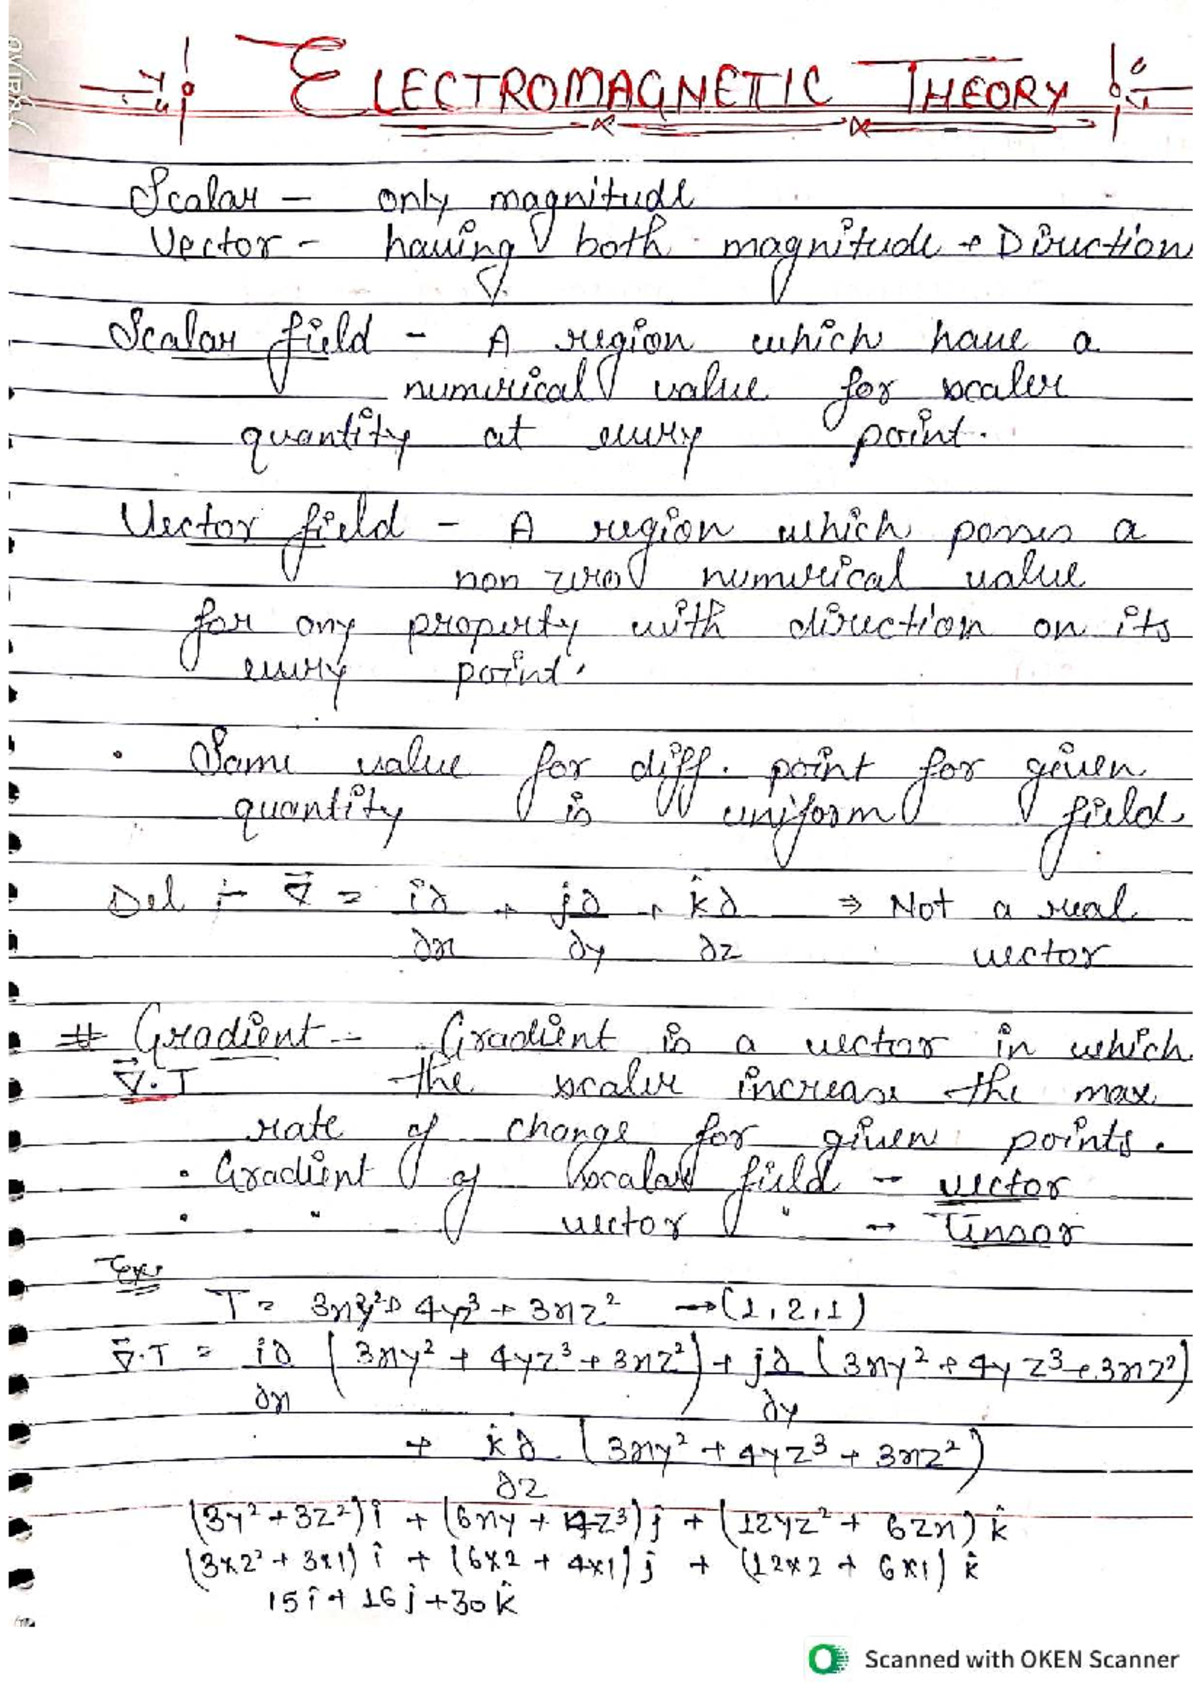 ELECTROMAGNETIC THEORY
Scalar - only magnitude
Vector - having both magnitude + Direction
Scalar field - A region which have a
numerical value for scaler
quantity at every point.
Vector field - A region which posses a
non zero numerical value
for any property with direction on its
every point.
• Same value for diff. point for given
quantity is uniform field.
Del :- ∇⃗ = i∂/∂x + j∂/∂y + k̂∂/∂z ⇒ Not a real
vector
# Gradient :- Gradient is a vector in which
∇⃗·T the scaler increase the max
rate of change for given points.
• Gradient of scalar field - vector
• " of vector " → Tensor
Ex:
T = 3xy² + 4yz³ + 3xz² → (1,2,1)
∇⃗·T = i∂/∂x (3xy² + 4yz³ + 3xz²) + j∂/∂y (3xy² + 4yz³ + 3xz²)
+ k̂∂/∂z (3xy² + 4yz³ + 3xz²)
(3y² + 3z²) î + (6xy + 4z³) ĵ + (12yz² + 6zx) k̂
(3×2² + 3×1) î + (6×2 + 4×1) ĵ + (12×2 + 6×1) k̂
15î + 16ĵ + 30k̂
Scanned with OKEN Scanner